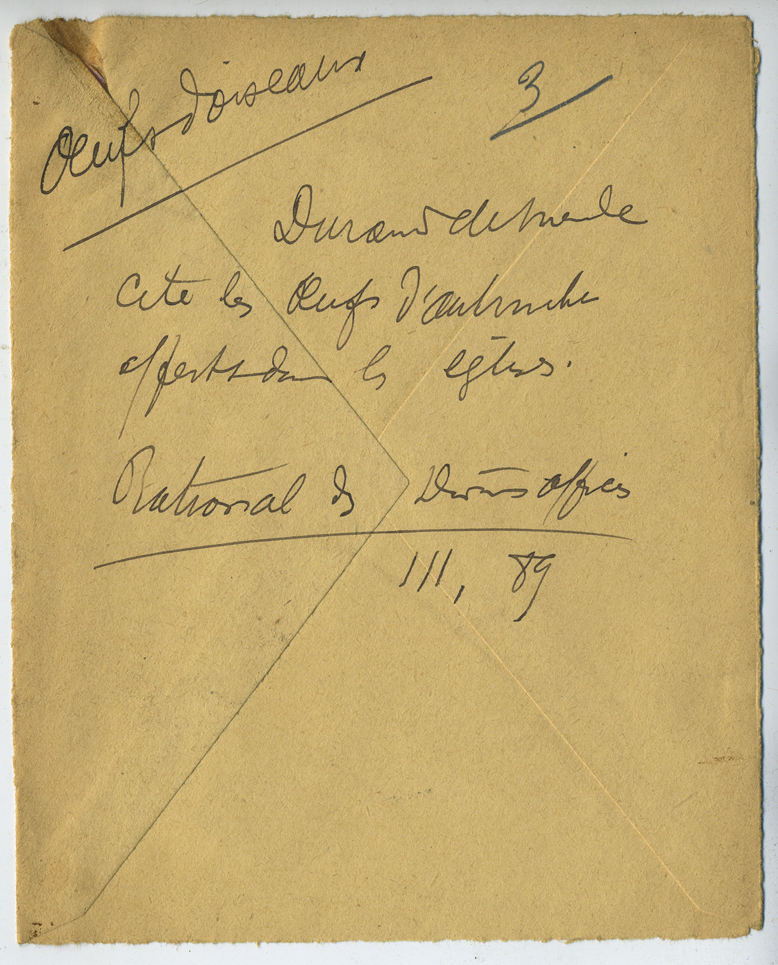 Œufs d'oiseaux
3
Durand de Mende
cite les Œufs d'autruche
offerts dans les églises.
Rational des Divins offices
III, 89